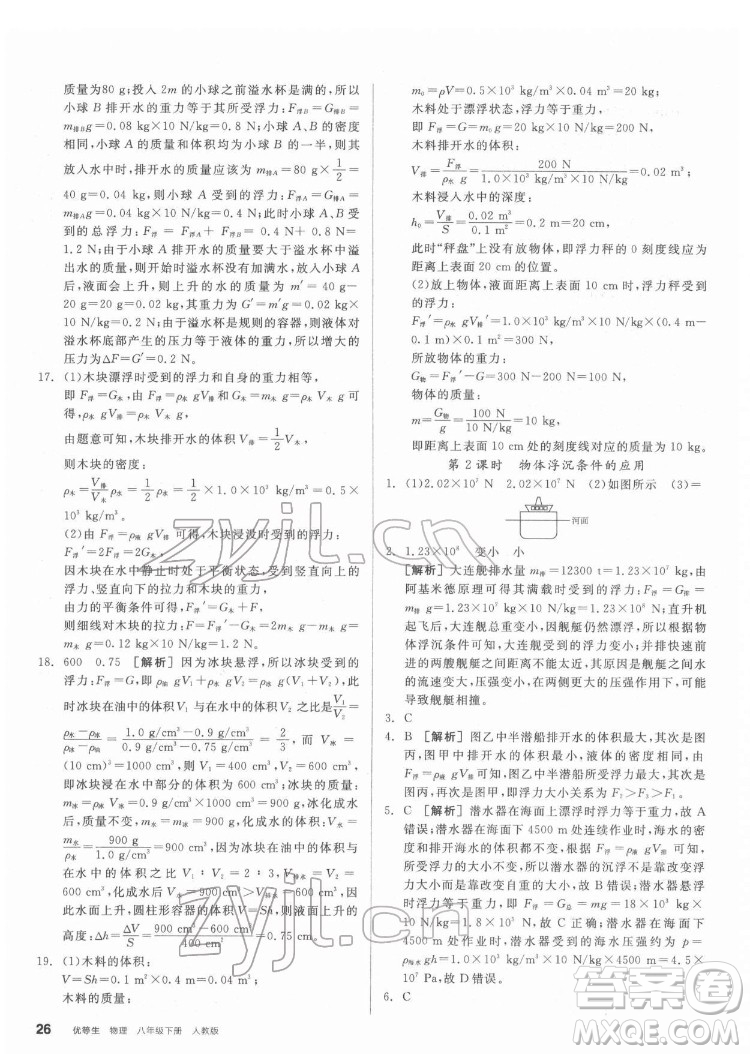 质量为80 g；投入 2m 的小球之前溢水杯是满的，所以
小球 B 排开水的重力等于其所受浮力：F浮B=G排B=
m排B g=0.08 kg×10 N/kg=0.8 N；小球 A、B 的密度
相同，小球 A 的质量为小球 B 的一半，故小球 A 直接
放入水中时，排开水的质量应该为 m排A=80 g×1/2=
40 g=0.04 kg；此时小球 A 受到的浮力：F浮A=G排A=
m排A g=0.04 kg×10 N/kg=0.4 N；此时小球 A、B 受到
的总浮力：F浮=F浮A+F浮B=0.4 N+0.8 N=
1.2 N；由于小球 A 排开水的质量要大于溢水杯中溢
出水的质量，所以溢水杯没有加满水，放入物体后，液
面会上升，则上升的水的质量 m′=40 g-
20 g=20 g=0.02 kg，其重力为 G′=m′g=0.02 kg×
10 N/kg=0.2 N；由于溢水杯是规则的容器，则液体对
溢水杯底部产生的压力等于液体的重力，所以增大的
压力为 ΔF=G′=0.2 N。
17. (1)木块漂浮时受到的浮力和自身的重力相等，
即 F浮=G木，由 F浮=ρ水 gV排和 G木=ρ木 gV木可
得，ρ水 gV排=ρ木 gV木，
由题意可知：木块排开水的体积 V排=1/2 V木，
则木块的密度：
ρ木=V排/V木 ρ水=1/2 ρ水=1/2×1.0×10³ kg/m³=0.5×
10³ kg/m³。
(2)由 F浮=ρ水 gV排可得，木块浸没时受到的浮力：
F浮′=2F浮=2G木=2×1.2 N=2.4 N，
因木块在水中静止时处于平衡状态，受到竖直向上的
浮力、竖直向下的拉力和重力，
由力的平衡条件可得：F浮′=G木+F拉，
则细线对木块的拉力：F拉=F浮′-G木=2.4 N-
1.2 N=1.2 N。
18. 600 0.75 [解析] 因为冰块悬浮，所以冰块受到的
浮力：F浮=G，即 ρ油 gV1+ρ水 gV2=ρ冰 g(V1+V2)，此
时冰块在油中的体积与在水中的体积之比是V1/V2=
(ρ水-ρ冰)/(ρ冰-ρ油)=(1.0 g/cm³-0.9 g/cm³)/(0.9 g/cm³-0.75 g/cm³)=2/3；而 V冰=
(10 cm)³=1000 cm³，所以 V1=400 cm³，V2=600 cm³，
即冰块浸在水中部分的体积为 600 cm³；冰块的质量：
m冰=ρ冰 V冰=0.9 g/cm³×1000 cm³=900 g，冰化成水
的体积：V水=m冰/ρ水=900 g/1.0 g/cm³=900 cm³；冰块在油中与
在水中的体积之比 V1∶V2=2∶3，冰块浸在水中的体
积为 600 cm³，化成水后 V水=900 cm³>600 cm³，故水
面上升，圆柱形容器的体积 V=Sh，则液面上升的
高度：Δh=ΔV/S=(900 cm³-600 cm³)/400 cm²=0.75 cm。
19. (1)木料的体积：
V=Sh=0.1 m²×0.4 m=0.04 m³，
木料的质量：
m₀=ρV=0.5×10³ kg/m³×0.04 m³=20 kg，
木料处于漂浮状态，浮力等于重力，
即 F浮=G=m₀g=20 kg×10 N/kg=200 N，
木料排开水的体积：
V排=F浮/ρ水 g=200 N/(1.0×10³ kg/m³×10 N/kg)=0.02 m³，
木料浸入水中的深度：
h₀=V排/S=0.02 m³/0.1 m²=0.2 m=20 cm，
此时“秤盘”上没有放物体，即浮力秤的 0 刻度线应为
距离上表面 20 cm 的位置。
(2)放上物体，液面距离上表面 10 cm 时，浮力秤受到
的浮力：
F浮′=ρ水 gV排′=1.0×10³ kg/m³×10 N/kg×(0.4 m-
0.1 m)×0.1 m²=300 N，
所放物体的重力：
G物=F浮′-G=300 N-200 N=100 N，
物体的质量：
m=G物/g=100 N/10 N/kg=10 kg，
即距离上表面 10 cm 处的刻度线对应的质量为 10 kg。
第 2 课时 物体浮沉条件的应用
1. (1)2.02×10⁷ N 2.02×10⁷ N (2)如图所示 (3)=
河面
2. 1.23×10⁸ 变小 小
[解析] 大连舰排水量 m排=12300 t=1.23×10⁷ kg，由
阿基米德原理可得其满载时受到的浮力：F浮=G排=
m排 g=1.23×10⁷ kg×10 N/kg=1.23×10⁸ N；直升机
起飞后，大连舰总重变小，因舰艇漂浮，所以由物体的
浮沉条件可知，舰艇受到的浮力变小；并排快速前
进的两艘舰艇，由流体压强与流速的关系可知，之间水
的流速变大，压强变小，在内外压强差的作用下，可能
导致舰艇相撞。
3. C
4. B [解析] 图乙中半潜船排开水的体积最大，其次是图
丙，图甲中排开水的体积最小，液体的密度不变，由
F浮=ρ水 gV排可知，图乙中受到的浮力最大，其次是
图丙，图甲受到的浮力最小，即 F₂>F₃>F₁。
5. C [解析] 潜水器在海面上漂浮时浮力等于重力，故 A
错误；潜水器在海面下 4500 m 处连续作业时，由于海水
密度和排开海水的体积不变，由 F浮=ρ海水 gV排可知，浮
力不变，所以潜水器的沉浮不是靠改变浮力大小实现
的，而是靠改变自重大小实现的，故 B 错误；潜水器悬浮时
受到的浮力大小为 F浮=G总=mg=18×10³ kg×
10 N/kg=1.8×10⁵ N，故 C 正确；潜水器在海面下
4500 m 处作业时，潜水器受到的海水压强约为 p=
ρ海水 gh=1.0×10³ kg/m³×10 N/kg×4500 m=4.5×
10⁷ Pa，故 D 错误。
6. C
26 优等生 物理 八年级下册 人教版
zyjl.cn
zyjl.cn
作业精灵